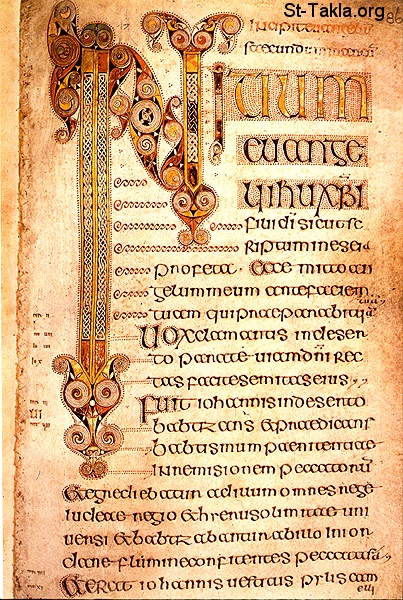 St-Takla.org
86
INITIUM
euange
lii ihu xpi
filii di sicut sc
riptum in esaia
profeta ecce mitto an
gelum meum ante faciem
tuam qui praeparabit uiam
tuam
uox clamantis in deser
to parate uiam dni rec
tas facite semitas eius
Fuit iohannis in deserto
babtizans et praedicans
babtismum paenitentiae
in remisionem peccatorum
et egrediebatur ad illum omnes rege
iudeae regio et hierusolimitae uni
uersi et babtizabantur ab illo in ior
dane flumine confitentes peccata sua
et erat iohannis uestitus pylis cam
eli